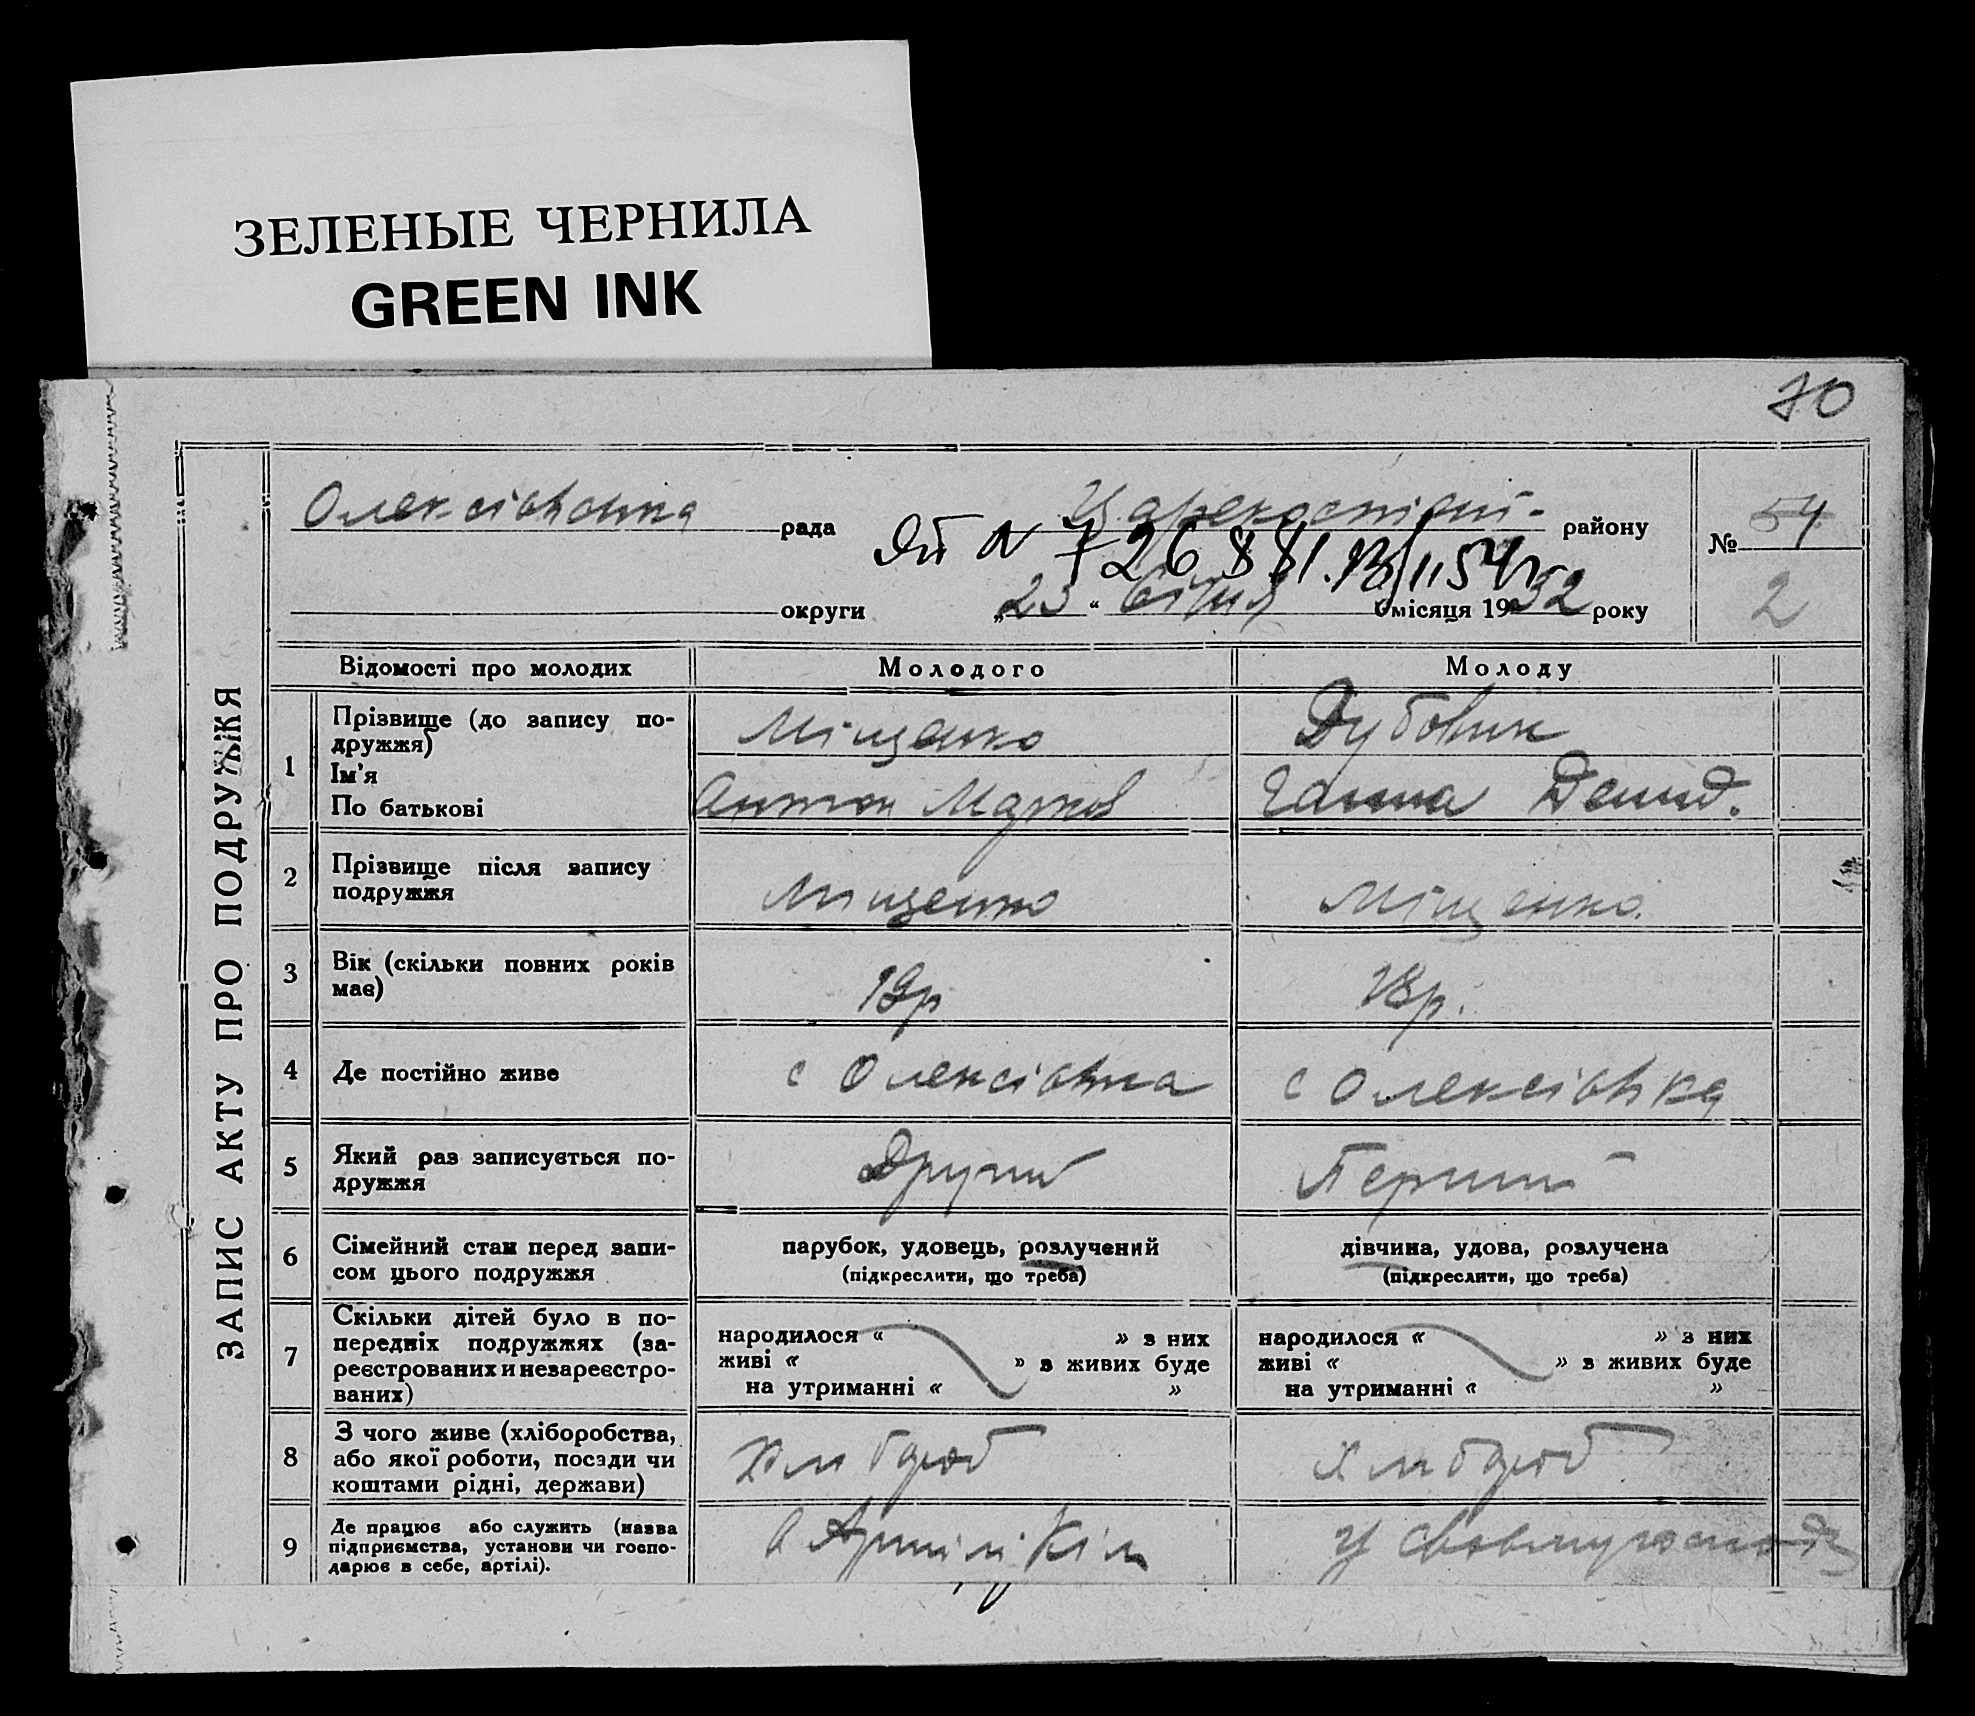 ЗЕЛЕНЫЕ ЧЕРНИЛА
GREEN INK
70
ЗАПИС АКТУ ПРО ПОДРУЖЖЯ
Олексіївська рада
району
№ 54
округи
„23 “ Січня місяця 1932 року
2
Відомості про молодих
Молодого
Молоду
1
Прізвище (до запису по-
дружжя)
Ім'я
По батькові
Міщенко
Антон Марков
Дубовик
Ганна Демид.
2
Прізвище після запису
подружжя
Міщенко
Міщенко
3
Вік (скільки повних років
має)
19р
18р.
4
Де постійно живе
с Олексіївка
с Олексіївка
5
Який раз записується по-
дружжя
Другий
Перший
6
Сімейний стан перед запи-
сом цього подружжя
парубок, удовець, розлучений
(підкреслити, що треба)
дівчина, удова, розлучена
(підкреслити, що треба)
7
Скільки дітей було в по-
передніх подружжях (за-
реєстрованих и незареєстро-
ваних)
народилося “ » з них
живі “ » з живих буде
на утриманні “ »
народилося “ » з них
живі “ » з живих буде
на утриманні “ »
8
З чого живе (хліборобства,
або якої роботи, посади чи
коштами рідні, держави)
Хлібороб
Хлібороб
9
Де працює або служить (назва
підприємства, установи чи госпо-
дарює в себе, артілі).
В Артілі
У своєму господ